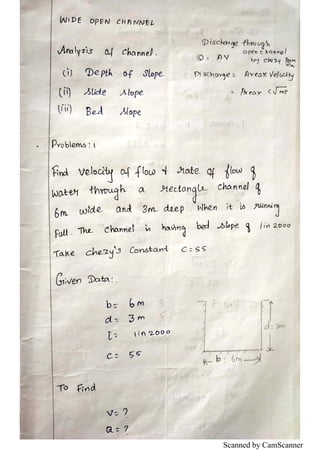 WIDE OPEN CHANNEL
Discharge through
open channel
by chezy
Analyzis of channel.
D = AV
(i) Depth of Slope.
Discharge = Area x Velocity
(ii) Slide slope
= Area x C√mi
(iii) Bed slope
Problems: 1
Find velocity of flow & rate of flow of
water through a rectangle channel of
6m wide and 3m deep. When it is running
full. The channel is having bed slope of 1in 2000
Take chezy's Constant C = 55
Given Data:
b = 6m
d = 3m
i = 1in 2000
C = 55
d = 3m
b = 6m
To Find
V = ?
Q = ?
Scanned by CamScanner